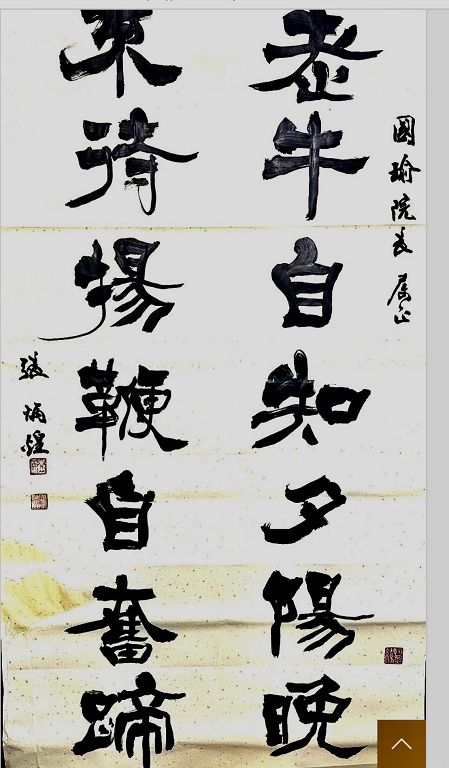 國瑜院長 屬正
老牛自知夕陽晚
待揚鞭自奮蹄
張炳煌